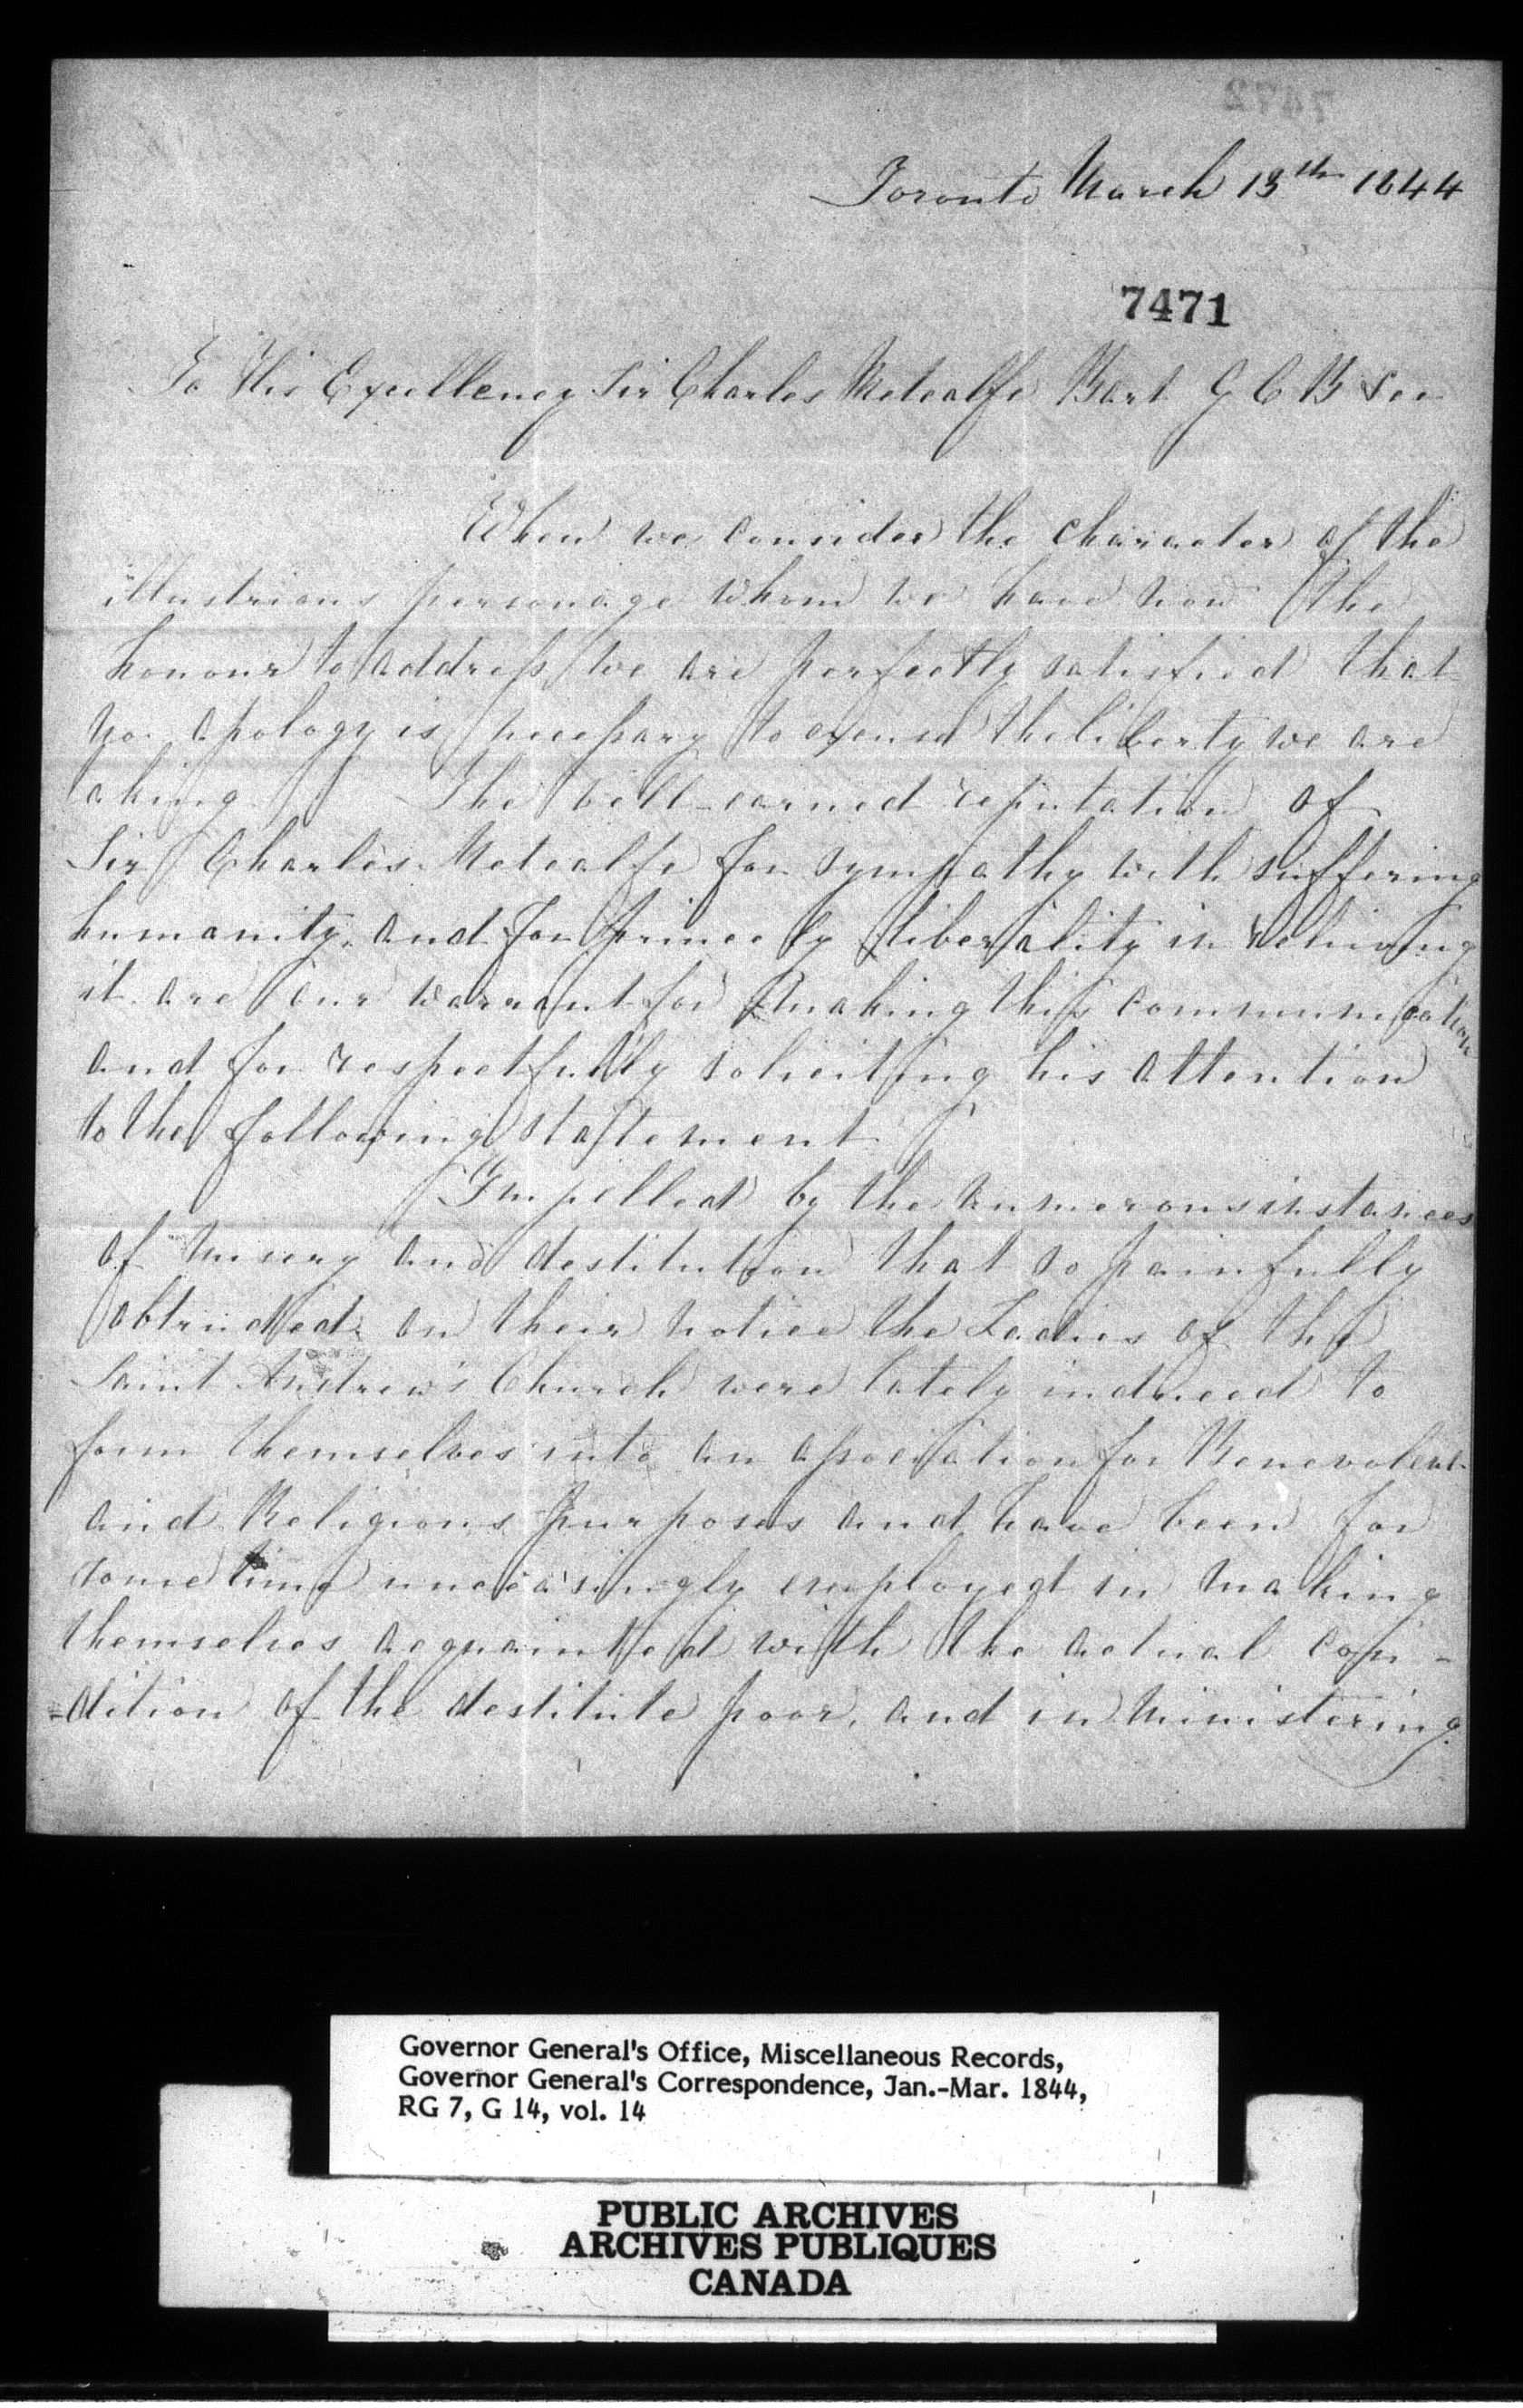 Toronto March 13th 1844
7471
To His Excellency Sir Charles Metcalfe Bart G C B &c
When we consider the character of the
illustrious personage whom we have now the
honour to address we are perfectly satisfied that
no apology is necessary to excuse the liberty we are
taking. The well-earned reputation of
Sir Charles Metcalfe for sympathy with suffering
humanity, and for princely liberality in relieving
it are our warrant for making this communication
and for respectfully soliciting his attention
to the following statement
Impelled by the numerous instances
of misery and destitution that so painfully
obtruded on their notice the Ladies of the
Saint Andrew's Church were lately induced to
form themselves into an association for Benevolent
and Religious Purposes and have been for
some time unceasingly employed in making
themselves acquainted with the actual con-
=dition of the destitute poor, and in ministering
Governor General's Office, Miscellaneous Records,
Governor General's Correspondence, Jan.-Mar. 1844,
RG 7, G 14, vol. 14
PUBLIC ARCHIVES
ARCHIVES PUBLIQUES
CANADA